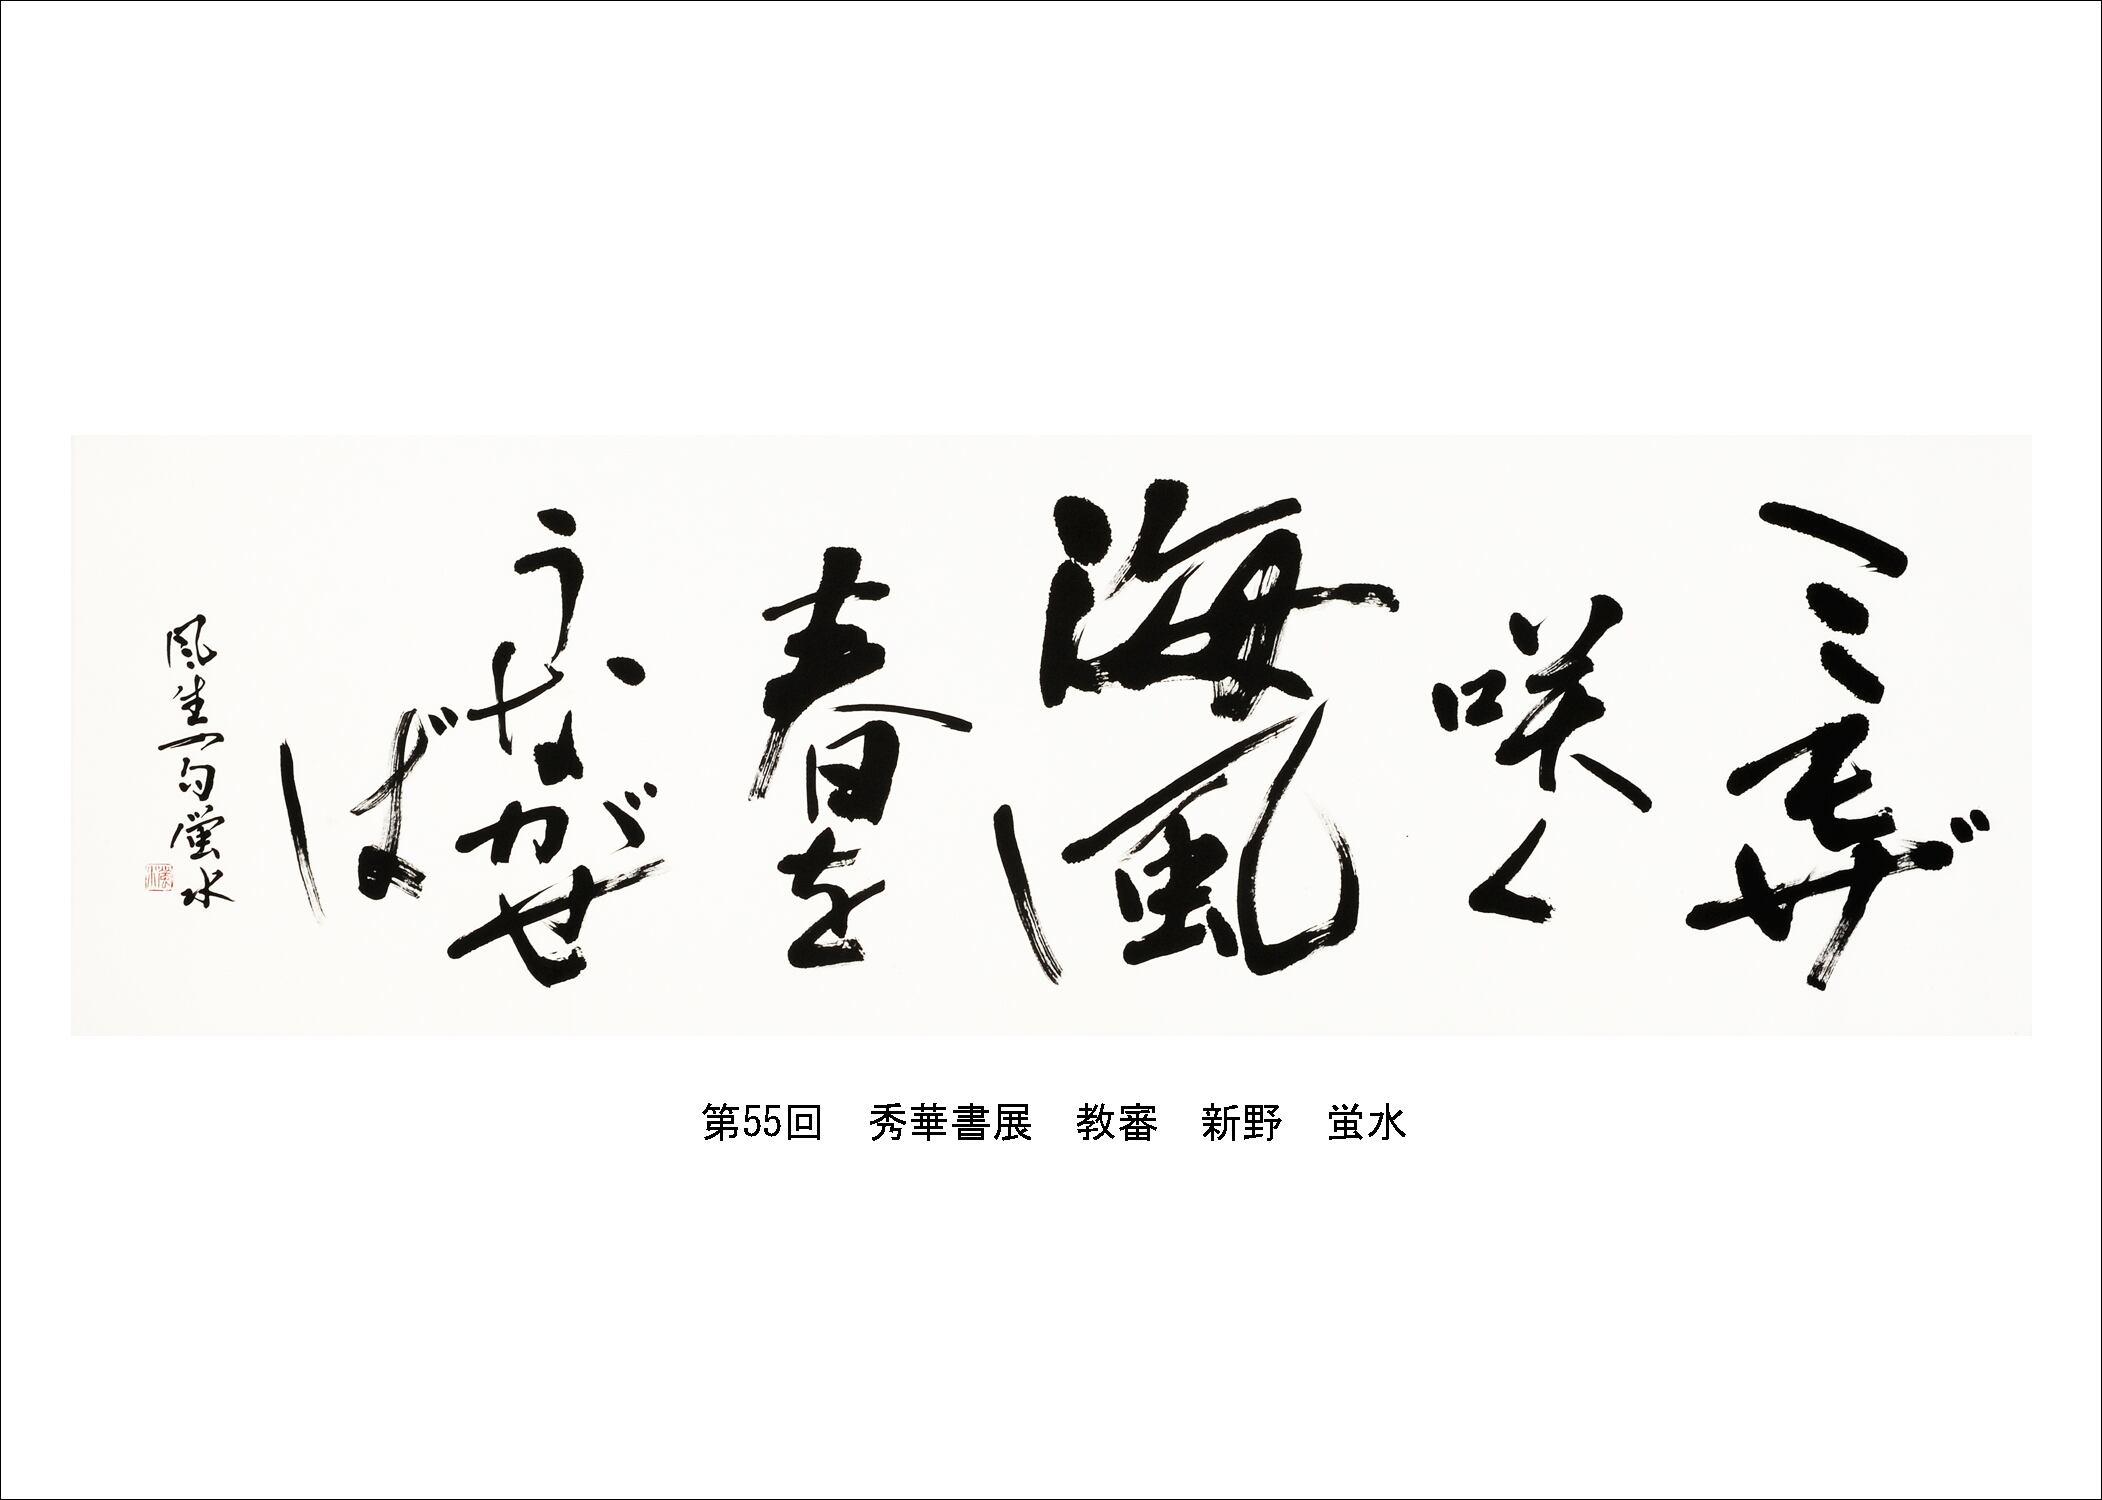 ミモザ
咲く
海風
春を
うながせ
ば
風生句 蛍水
第55回　秀華書展　教審　新野　蛍水